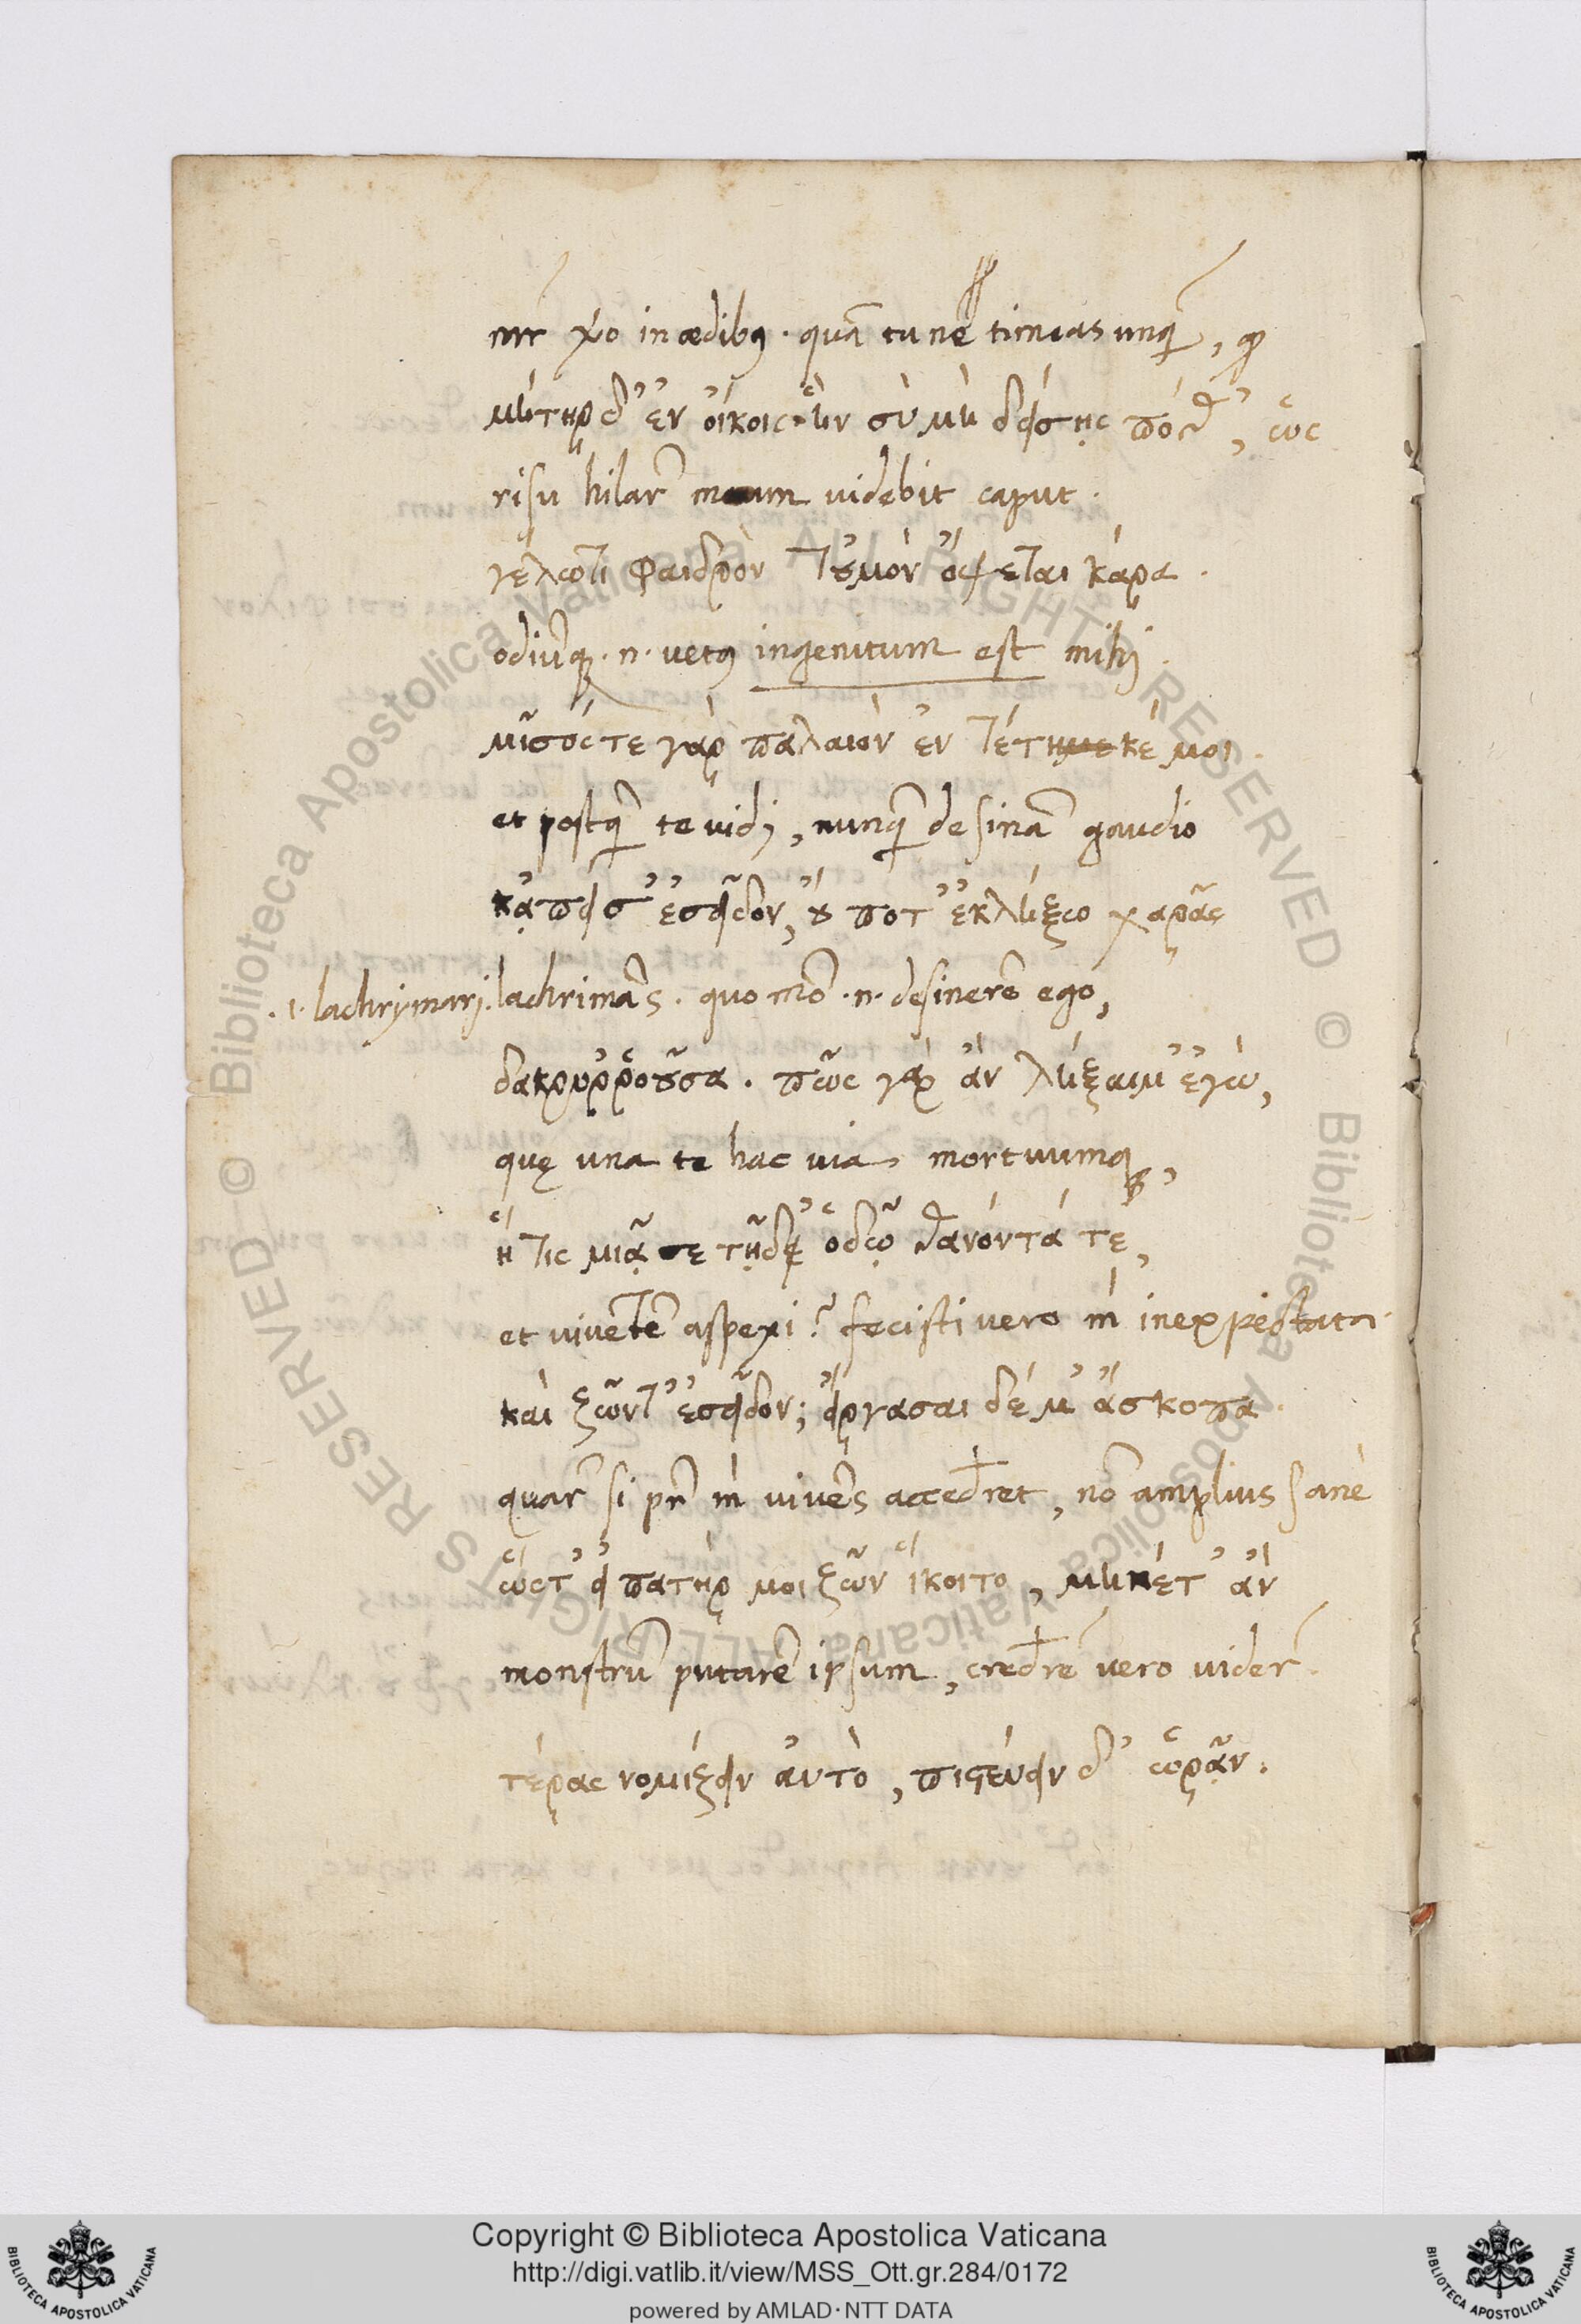 mr̃ ꝟo in ædibꝰ. quã tu nẽ timeas unq̃, ꝙ
μήτηρ δ' ἐν οἴκοις· ἣν σὺ μὴ δείσῃς ποθ', ὡς
risu hilar̃ meum videbit caput.
γέλωτι φαιδρὸν τοὐμὸν ὄψεται κάρα.
odiũq;. n. vetꝰ ingenitum est mihj.
μῖσός τε γὰρ παλαιὸν ἐντέτηκέ μοι.
et postq̃ te vidj, nunq̃ desinã gaudio
κᾀπεί σ' ἐσεῖδον, οὔ ποτ' ἐκλήξω χαρᾶς
.i. lachrymarj. lachrimãs. quo mõ .n. desinerẽ ego,
δακρυῤῥοοῦσα. πῶς γὰρ ἂν λήξαιμ' ἐγὼ,
quę una te hac via mortuumq;,
ἥτις μιᾷ σε τῇδε ὁδῷ θανόντά τε,
et viventẽ aspexi? fecisti vero m inexpectata.
καὶ ζῶντ' ἐσεῖδον; εἴργασαι δέ μ' ἄσκοπα.
quar̃ si pr̃ m vivẽs accedret, nõ amplius sane
ὥστ' εἰ πατήρ μοι ζῶν ἵκοιτο, μηκέτ' ἂν
monstrũ putarẽ ipsum, credrẽ vero vider̃.
τέρας νομίζειν αὐτὸ, πιστεύειν δ' ὡρᾷν.
Copyright © Biblioteca Apostolica Vaticana
http://digi.vatlib.it/view/MSS_Ott.gr.284/0172
powered by AMLAD·NTT DATA